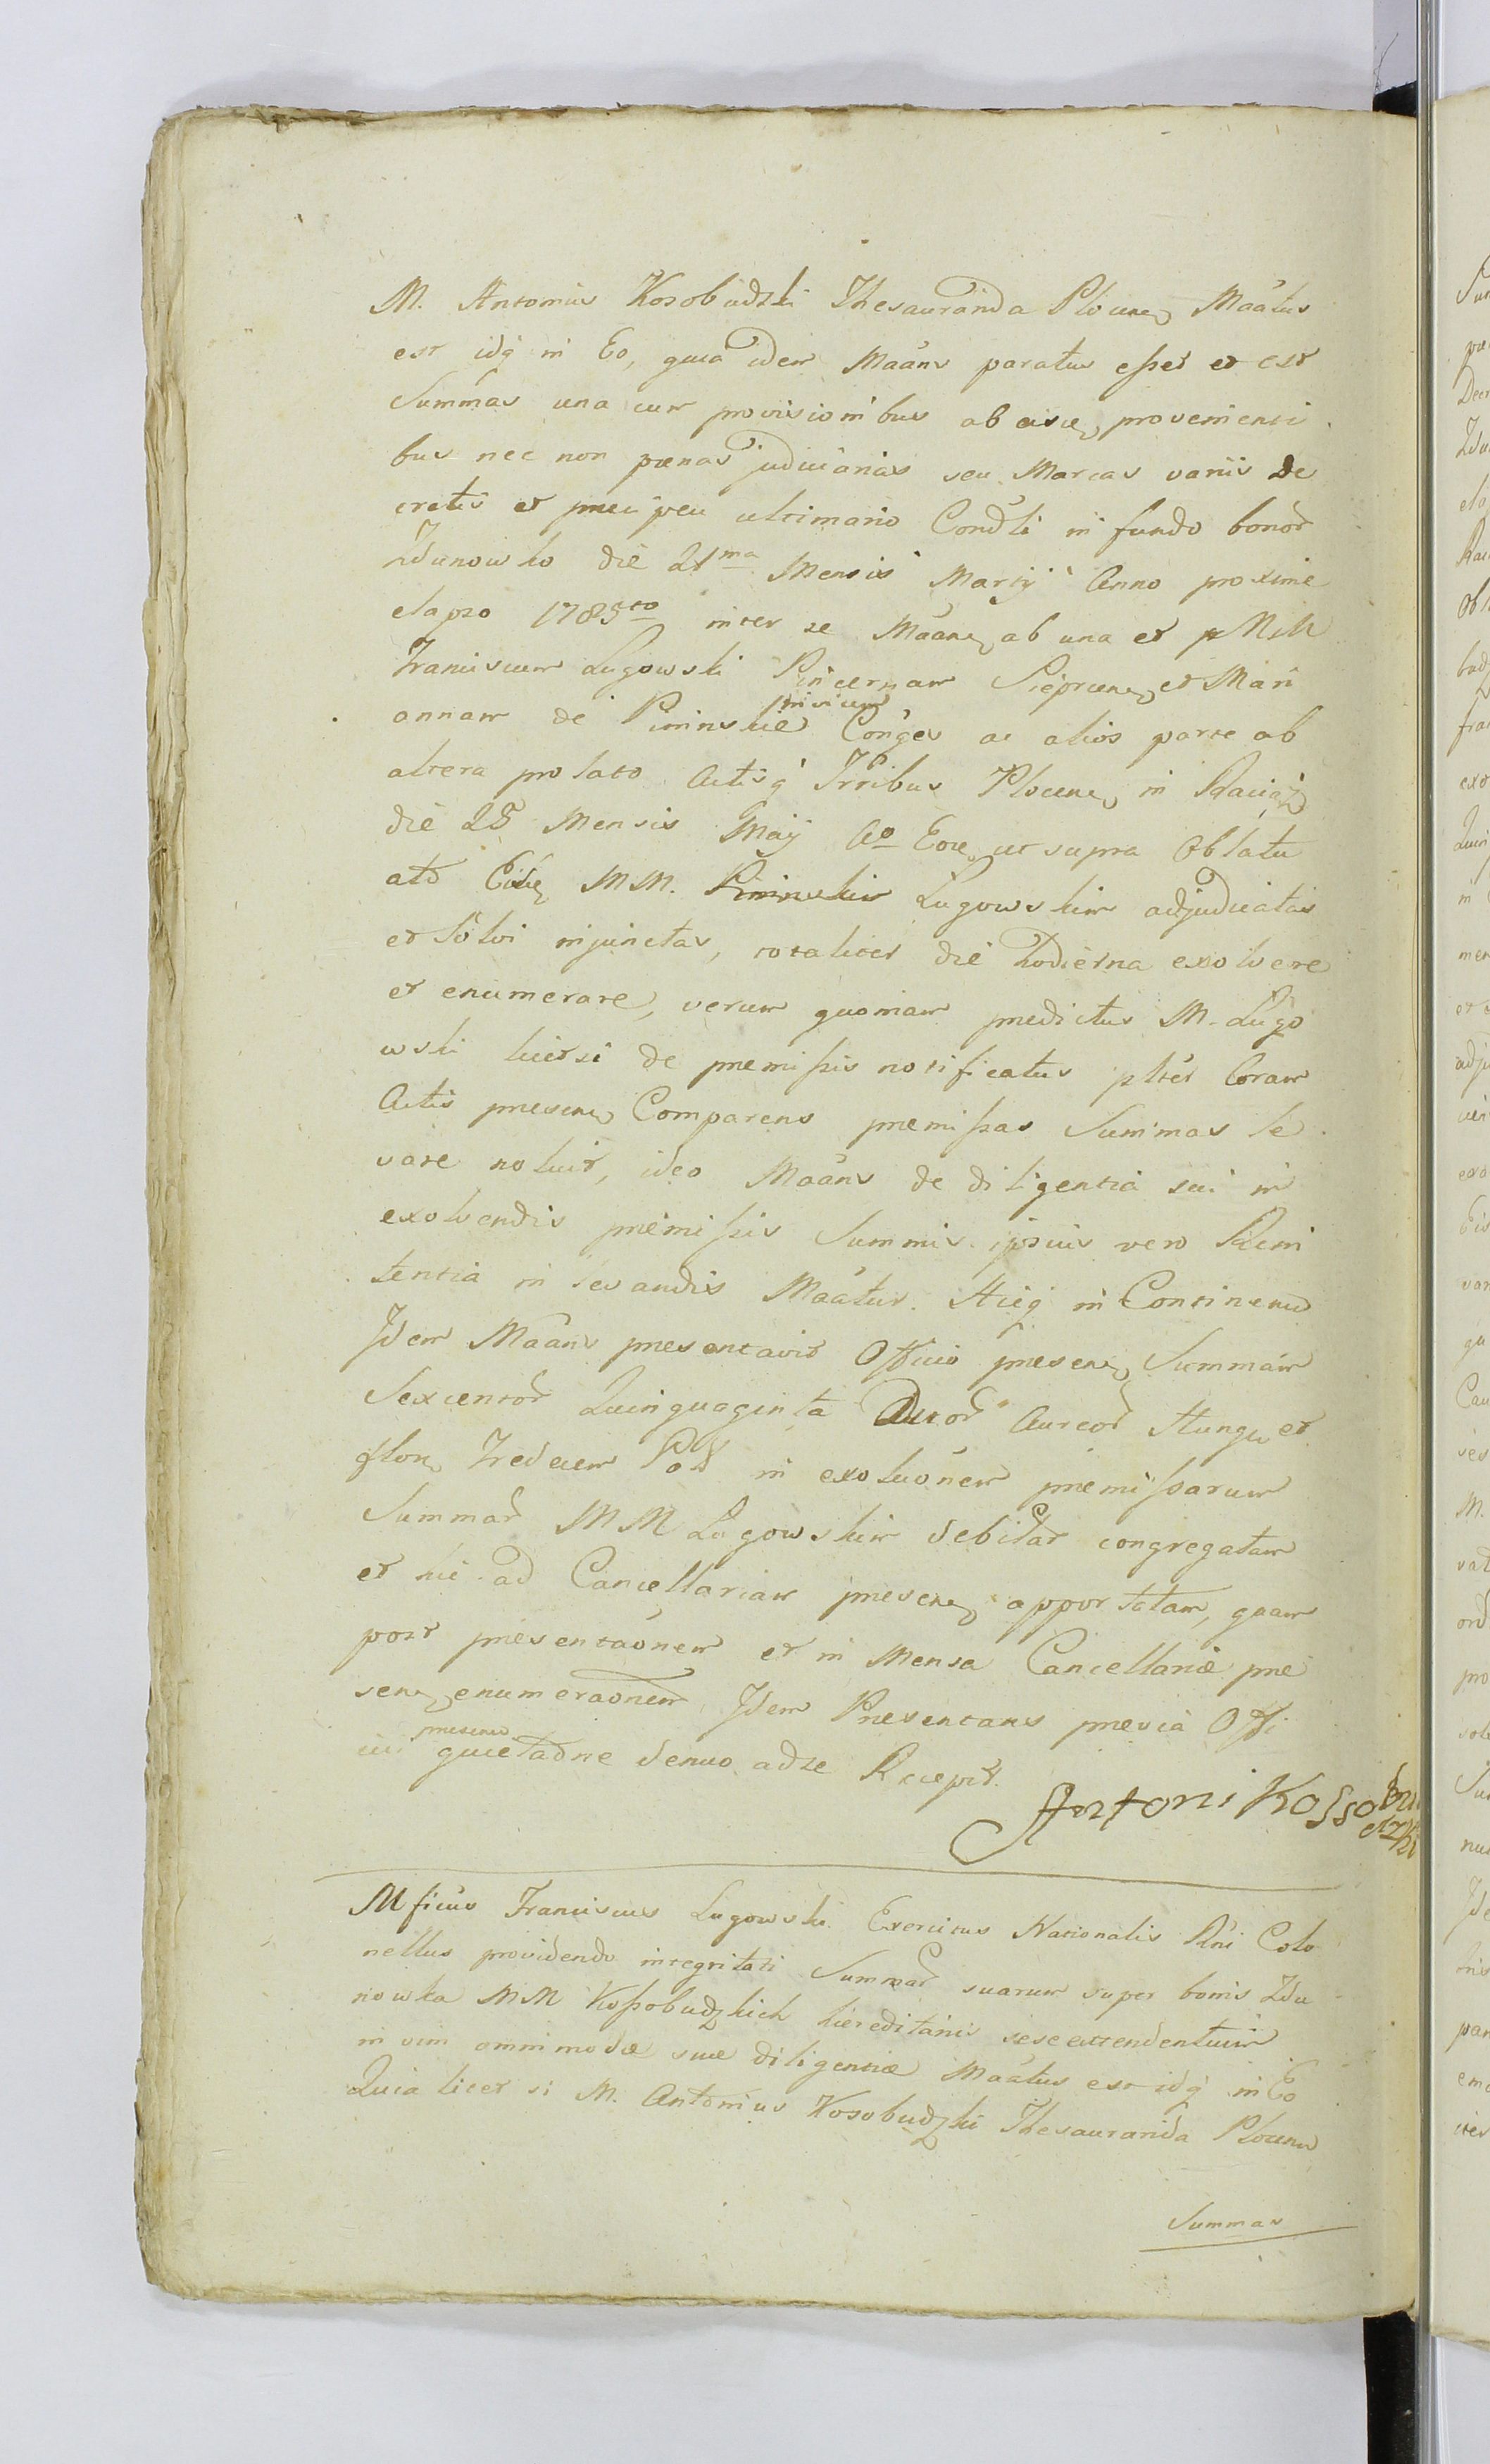 M. Antonius Kosobudzki Thesauranda Plocen Maãtus
est idq̃ in Eo, quia idem Maãns paratus esset et est
Summas una cum provisionibus ab eisd proveniensi
bus nec non pœnas judiciarias seu Marcas variis De
cretis et precipeu ultimario Condẽli in fundo bonor
Zdunowko die 21ma Mensis Martij Anno proxime
elapso 1785to inter se Maãne ab una et MM
Franciscum Lugowski Pincernam Sieprcen et Mari
annam de Pininskie Conges ac alios parte ab
altera prolato Actisq̃ Trribus Plocen in Raciąż
die 28 Mensis Maij Ao Eod ut supra Oblatu
atd MM. Lugowskim adjudicatas
et Solvi injunctas, totaliter die hodierna exolvere
et enumerare, verum quoniam predictus M. Lugo
wski licetsi de premissis notificatus plter Coram
Actis presen Comparens premissas Summas le
vare noluit, ideo Maãns de diligentia sui in
exolvendis premissis Summis ipsius vero Reni
tentia in levandis Maãtur. Hicq̃ in Continenti
Idem Maãns presentavit Officio presen Summam
Sexcentor Quinquaginta Duor Aureor Hung et
flon Tredecem Pol in exoluõnem premissarum
Summar MM Lugowskim debitar congregatam
et hic ad Cancellariam presen apportatam, quam
post presentaõnem et in Mensa Cancellariæ pre
sen enumeraõnem Idem Presentans previa Offi
presens
cii quietaõne denuo adse Recepit.
Antoni Kossobu
dzki
Mficus Franciscus Lugowski Exercitus Nationalis Rni Colo
nellus providendo integritati Summar suarum super bonis Zdu
nowka MM Kossobudzkich hæreditariis sese extendentium
in vim omnimodæ suæ diligentiæ Maãtus est idq̃ in Eo
Quia licet si M. Antonius Kosobudzki Thesauranda Plocen
Summas